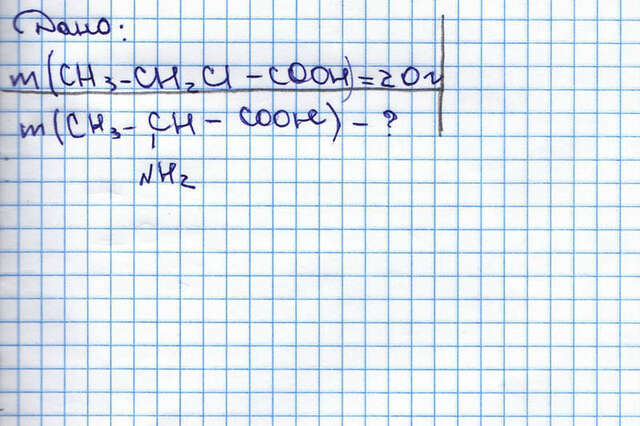 Дано:
m(CH₃-CH₂Cl-COOH)=20г
m(CH₃-CH-COOH)-?
NH₂